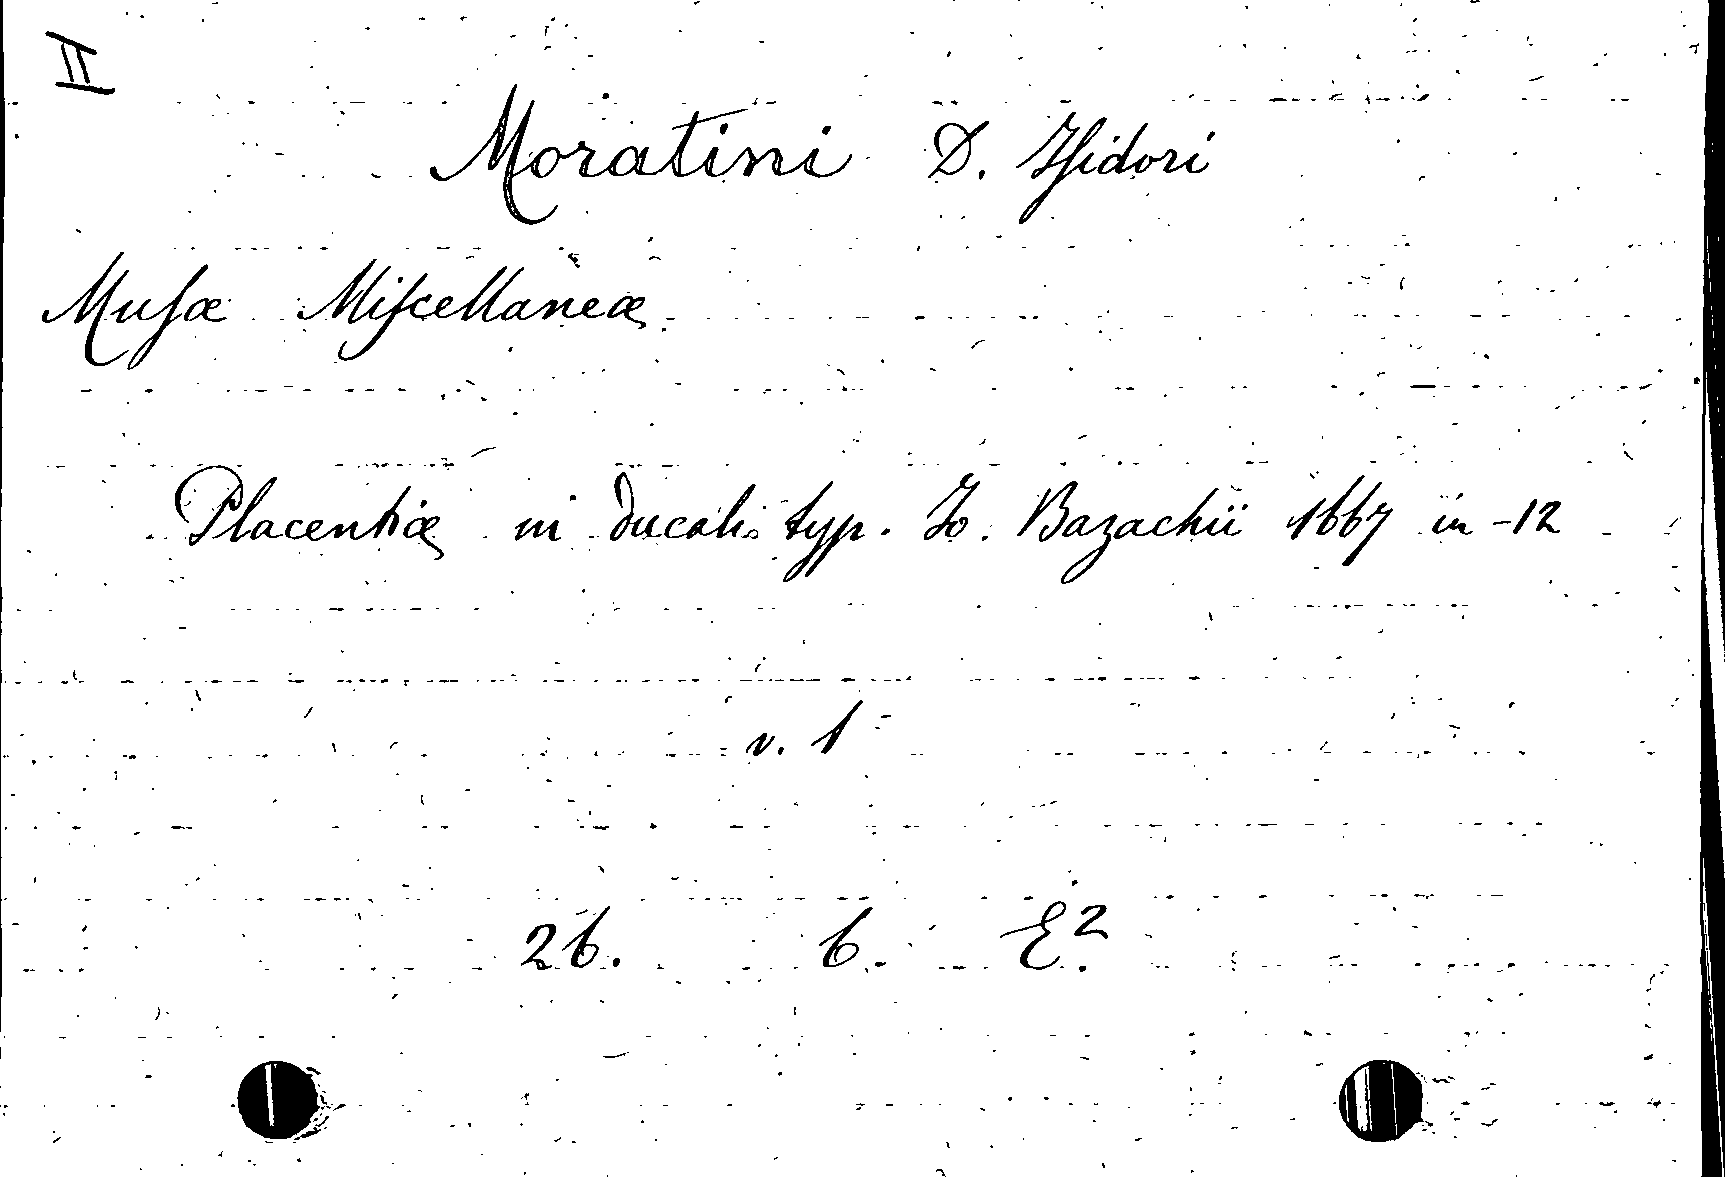 II
Moratini D. Isidori
Musæ Miscellaneæ
Placentiæ in ducali typ. Jo. Bazachii 1667 in-12
v. 1
26. 6. E².